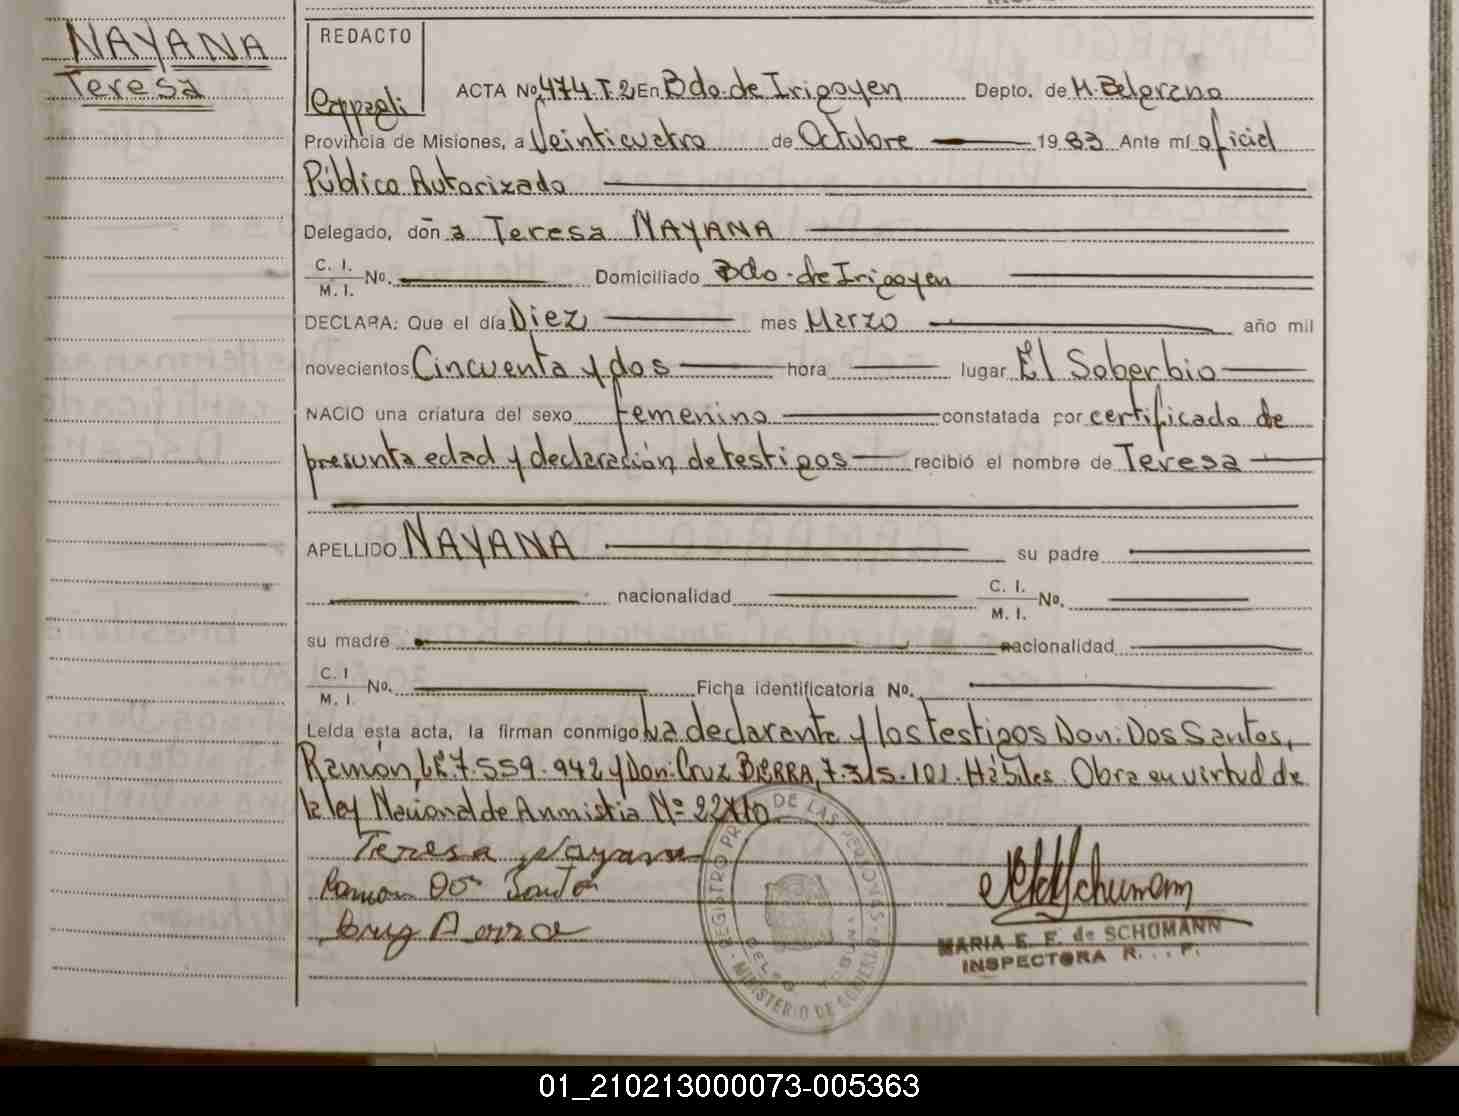 NAYANA
Teresa
REDACTO
ACTA No 474.T2 En Bdo. de Irigoyen Depto. de M. Belgrano
Provincia de Misiones, a Veinticuatro de Octubre 1983 Ante mí oficial
Público Autorizado
Delegado, doña Teresa NAYANA
C. I.
M. I. No. Domiciliado Bdo. de Irigoyen
DECLARA: Que el día Diez mes Marzo año mil
novecientos Cincuenta y dos hora lugar El Soberbio
NACIO una criatura del sexo femenino constatada por certificado de
presunta edad y declaración de testigos recibió el nombre de Teresa
APELLIDO NAYANA su padre
nacionalidad C. I.
M. I. No.
su madre nacionalidad
C. I
M. I. No. Ficha identificatoria No.
Leída ésta acta, la firman conmigo La declarante y los testigos Don: Dos Santos,
Ramón, LE 7.559.942 y Don: Cruz BIERRA, 7.315.101. Hábiles. Obra en virtud de
la ley Nacional de Anmistia Nº
Teresa Nayana
Ramon Dos Santo
Cruz
REGISTRO PR DE LAS PERSONAS
MINISTERIO DE GOBIERNO
MARIA E. F. de SCHUMANN
INSPECTORA R. . . P.
01_210213000073-005363